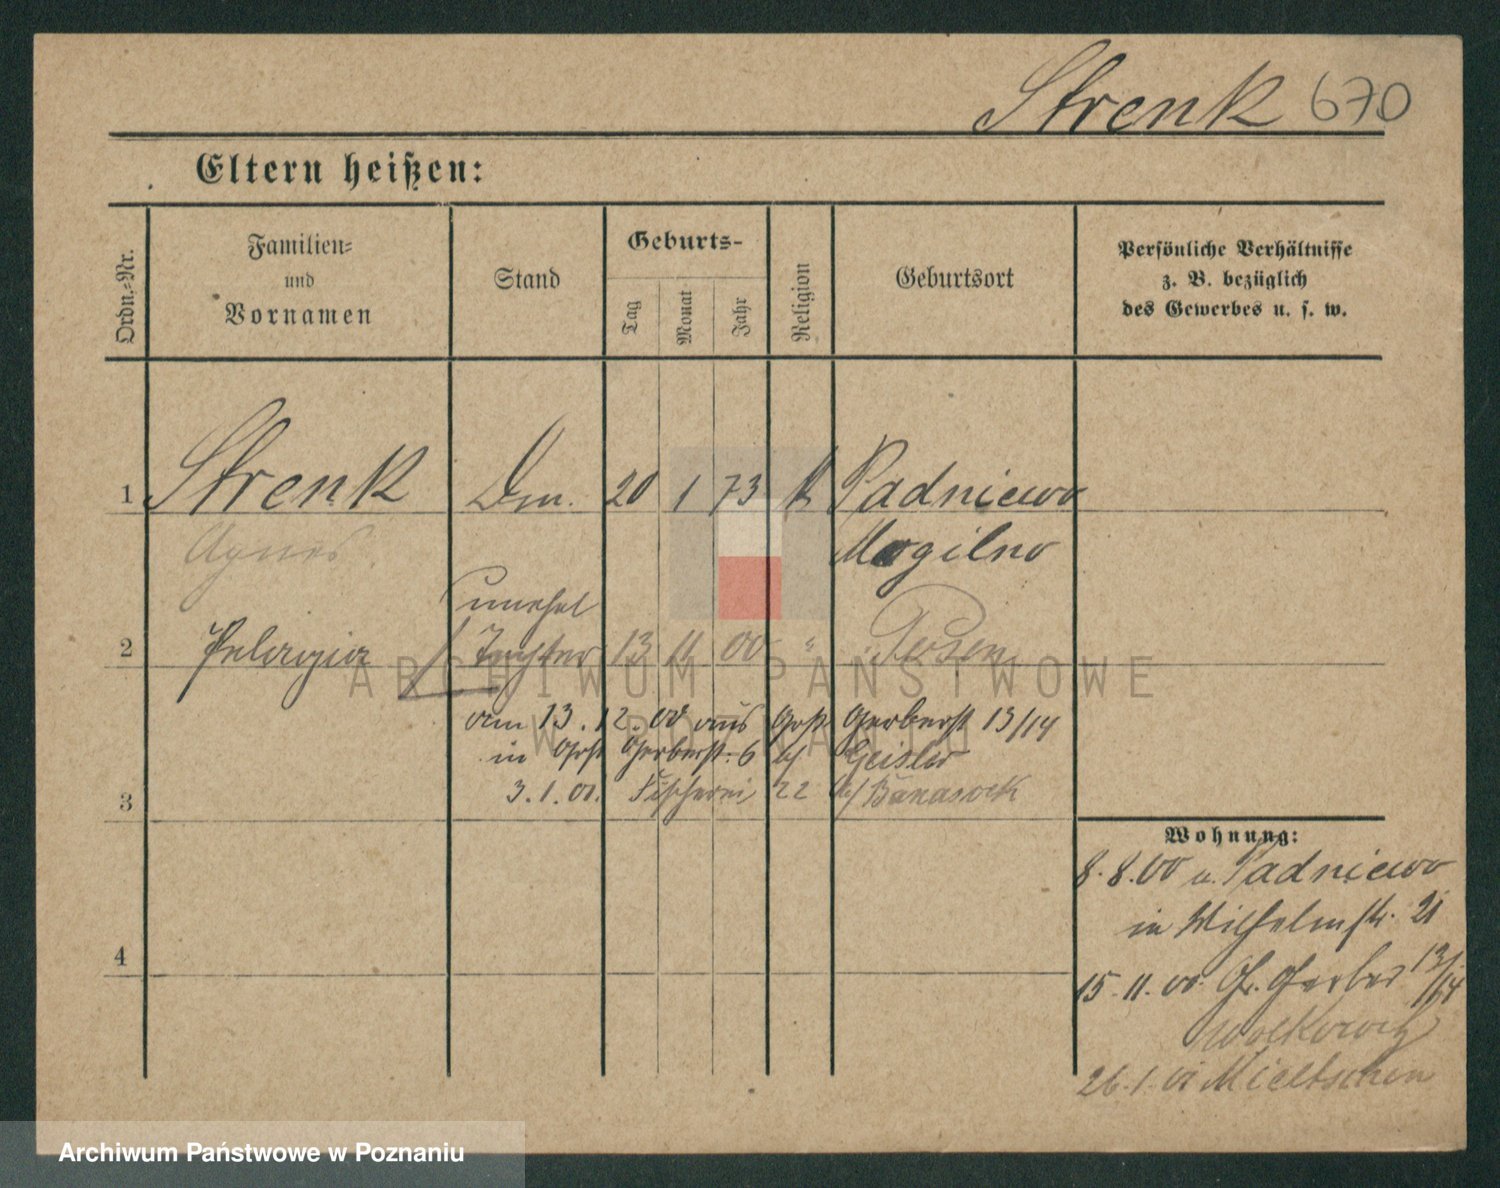 Strenk 670
Eltern heißen:
Ordn.-Nr.
Familien-
und
Vornamen
Stand
Geburts-
Tag
Monat
Jahr
Religion
Geburtsort
Persönliche Verhältnisse
z. B. bezüglich
des Gewerbes u. s. w.
1 Strenk 20 1 73 k Padniewo
Agnes Mogilno
unehel
2 Pelagia Tochter 13 11 00 " Posen
am 13.12.00 aus Groß Gerberst 13/14
in Groß Gerberst. 6 b/ Geisler
3 3.1.01. Fischerei 22 b/ Banaszek
Wohnung:
8.8.00 a. Padniewo
in Wilhelmstr. 21
4
15.11.00 Gr. Gerber 13/14
Wolkowitz
26.1.01 Mieltschin
ARCHIWUM PAŃSTWOWE
W POZNANIU
Archiwum Państwowe w Poznaniu